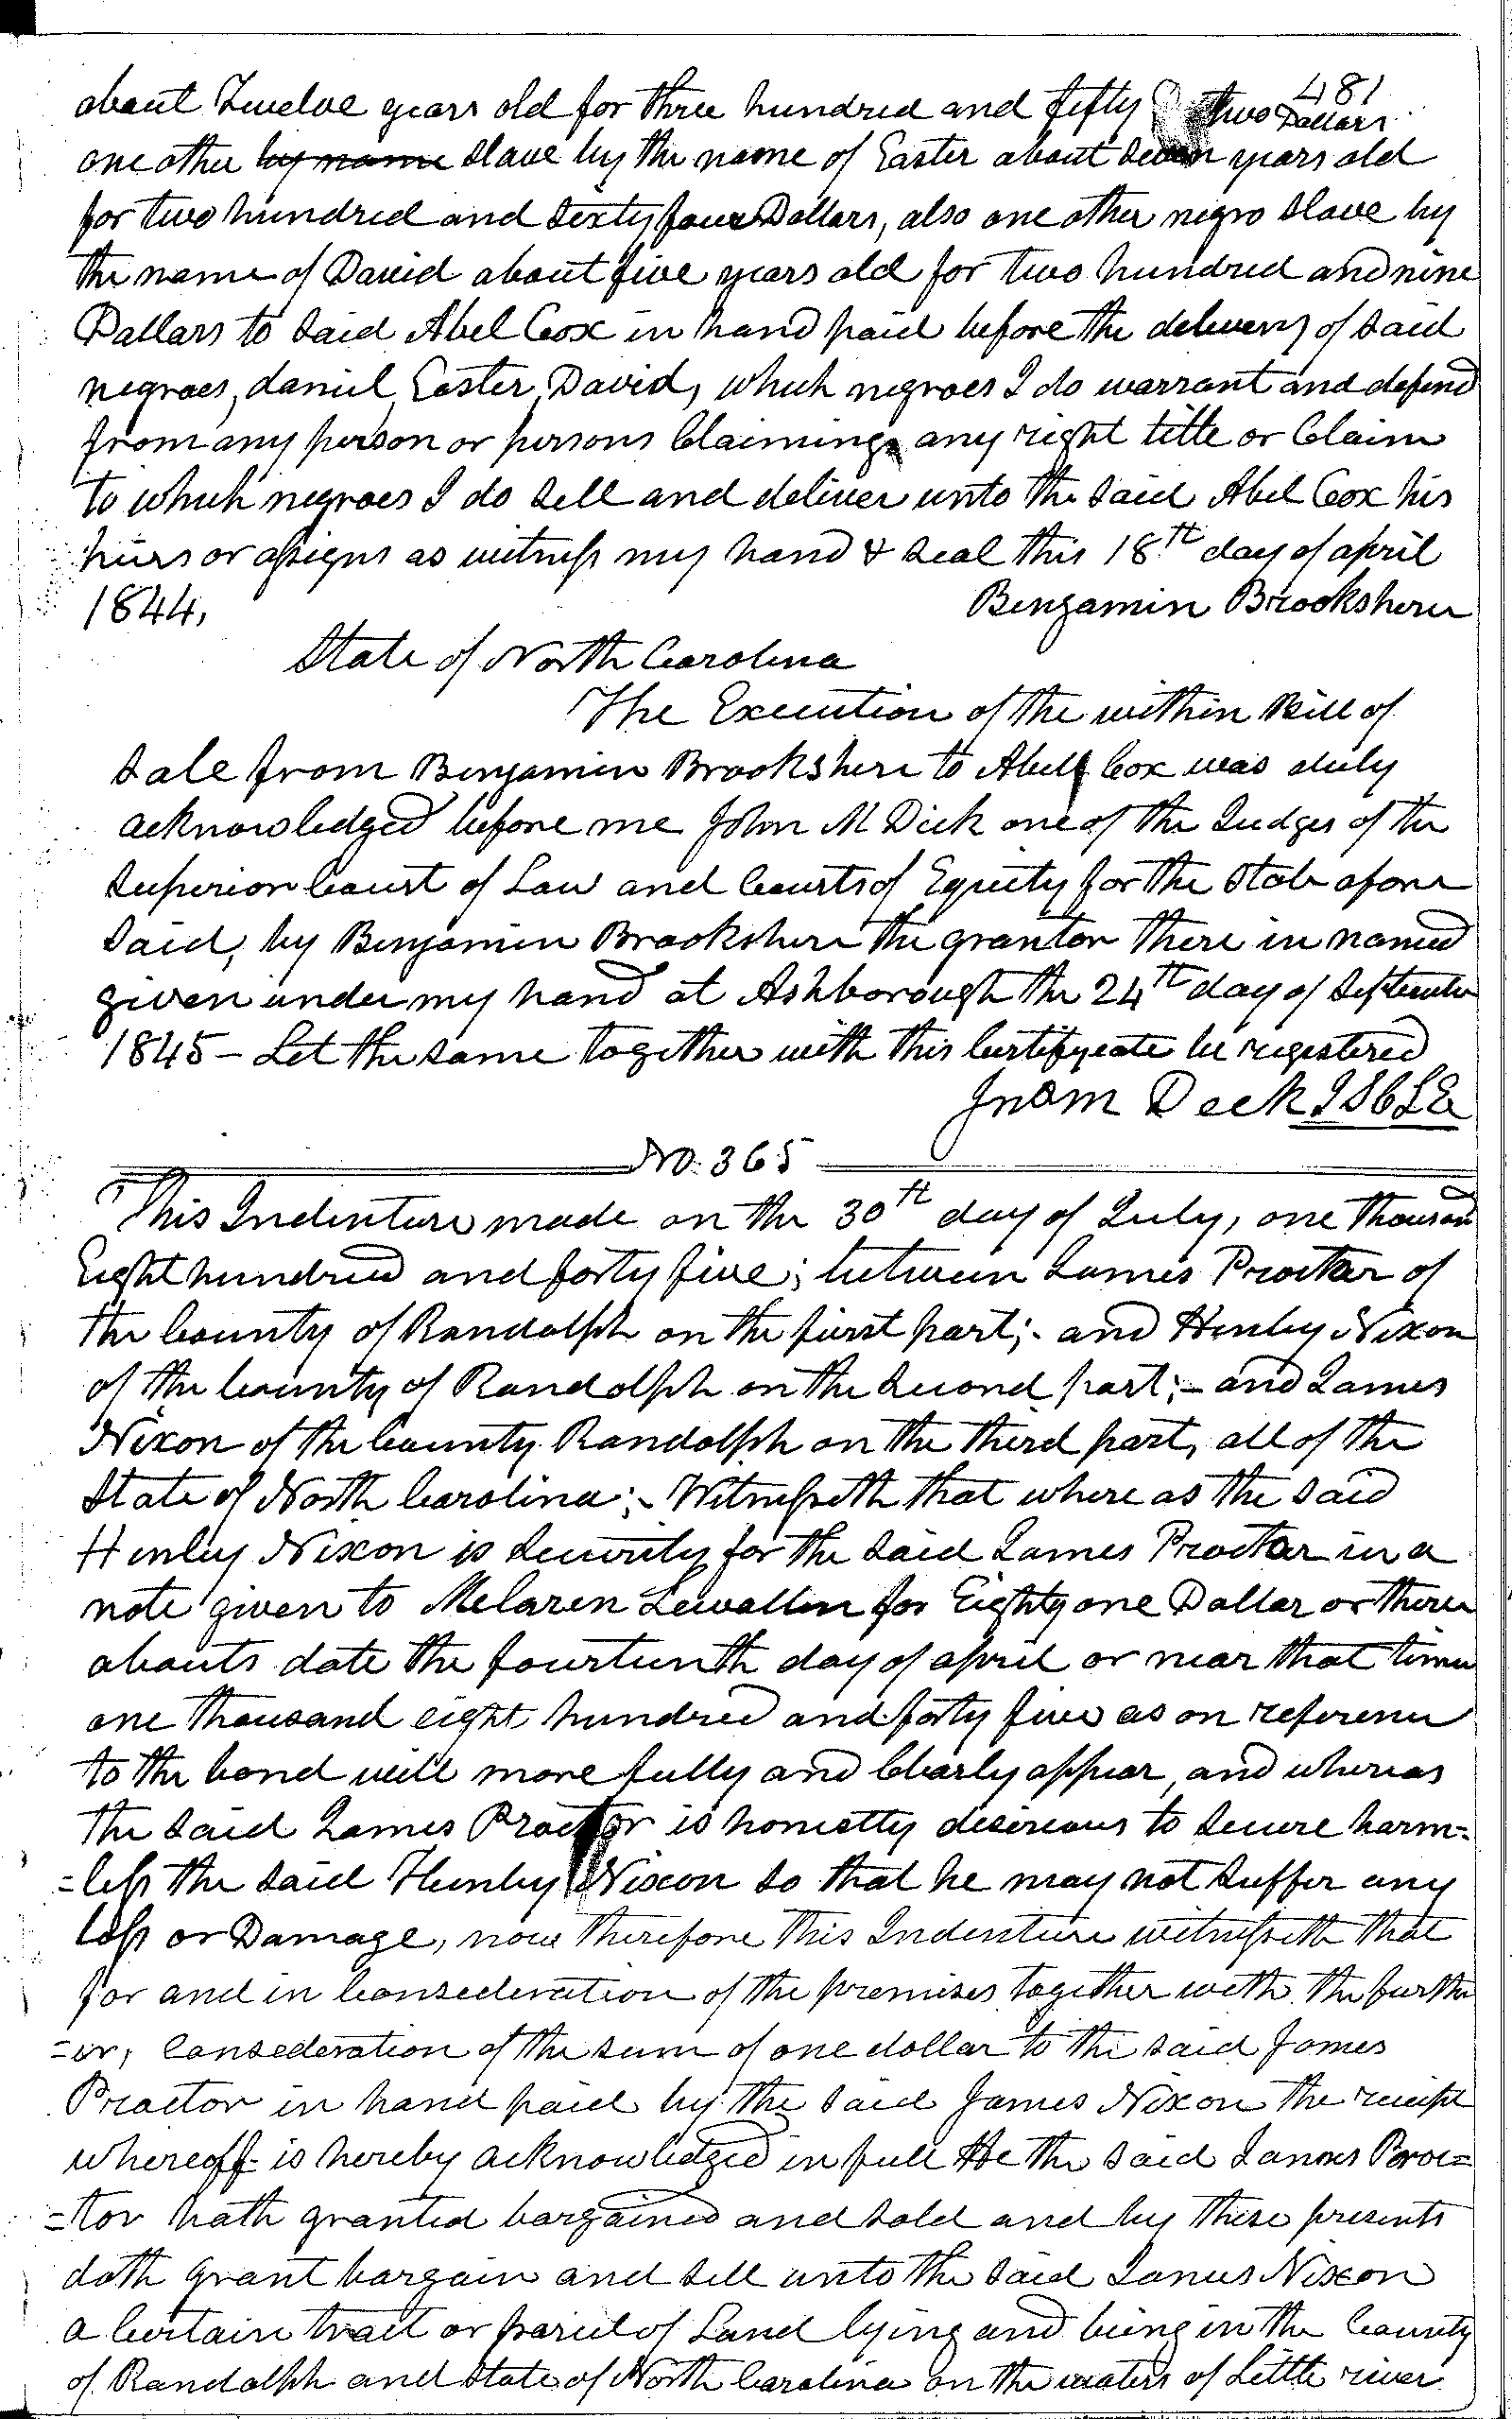 481
about Twelve years old for three hundred and fifty two Dollars
one other by name slave by the name of Easter about seven years old
for two hundred and sixty four Dollars, also one other negro slave by
the name of David about five years old for two hundred and nine
Dollars to said Abel Cox in hand paid before the delivery of said
negroes, daniel, Easter, David, which negroes I do warrant and defend
from any person or persons Claiming any right title or Claim
to which negroes I do sell and deliver unto the said Abel Cox his
heirs or assigns as witness my hand & seal this 18th day of april
1844, Benjamin Brookshere
State of North Carolina
The Execution of the within Bill of
sale from Benjamin Brookshere to Abell Cox was duly
acknowledged before me John M Dick one of the Judges of the
Superior Court of Law and Courts of Equity for the State afore
said, by Benjamin Brookshere the grantor there in named
given under my hand at Ashborough the 24th day of September
1845 – Let the same together with this Certifycate be registered
Jno M Dick J S C L E
No. 365
This Indenture made on the 30th day of July, one thousand
Eight hundred and forty five; between James Procter of
the County of Randolph on the first part;- and Henley Nixon
of the County of Randolph on the second part;- and James
Nixon of the County Randolph on the third part, all of the
State of North Carolina;- Witnesseth that where as the said
Henley Nixon is security for the said James Proctor in a
note given to Melaren Lewallen for Eighty one Dollar or there
abouts date the fourteenth day of april or near that time
one thousand eight hundred and forty five as on reference
to the bond will more fully and Clearly appear, and whereas
the said James Proctor is honestly desireous to secure harm=
=less the said Henley Nixon so that he may not suffer any
loss or Damage, now therefore this Indenture witnesseth that
for and in Consederation of the premises together with the furth
=er, Consederation of the sum of one dollar to the said James
Proctor in hand paid by the said James Nixon the receipt
whereoff is hereby acknowledged in full He the said James Proc=
=tor hath granted bargained and sold and by these presents
doth grant bargain and sell unto the said James Nixon
a Certain tract or parcel of Land lying and being in the County
of Randolph and State of North Carolina on the waters of Little river